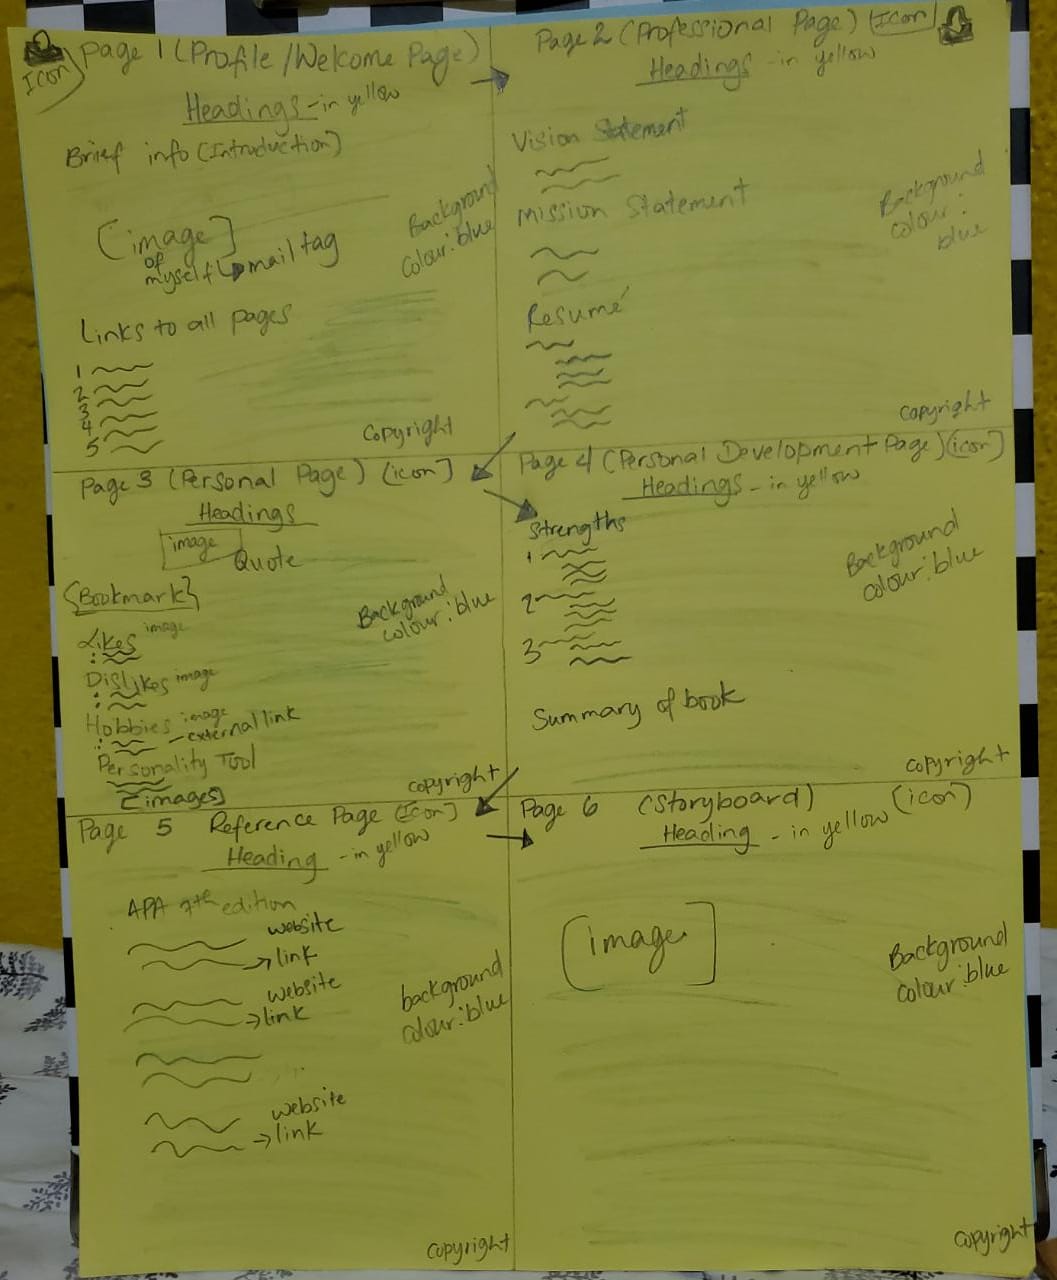 Icon
Page 1 (Profile/Welcome Page)
Headings - in yellow
Brief info (Introduction)
Background
colour: blue
[image]
of
myself
mail tag
Links to all pages
1
2
3
4
5
Copyright
Page 2 (Professional Page) (Icon)
Headings - in yellow
Vision Statement
Background
colour:
blue
Mission Statement
Resumé
Copyright
Page 3 (Personal Page) (icon]
Headings
image
Quote
{Bookmark}
Background
colour: blue
Likes image
Dislikes image
Hobbies image
- external link
Personality Tool
[images]
Copyright
Page 4 (Personal Development Page) (icon]
Headings - in yellow
Strengths
1
Background
colour: blue
2
3
Summary of book
Copyright
Page 5 Reference Page (Icon]
Heading - in yellow
APA 7th edition
website
link
website
link
background
colour: blue
website
link
Copyright
Page 6 (Storyboard) (icon)
Heading - in yellow
[image]
Background
colour: blue
Copyright